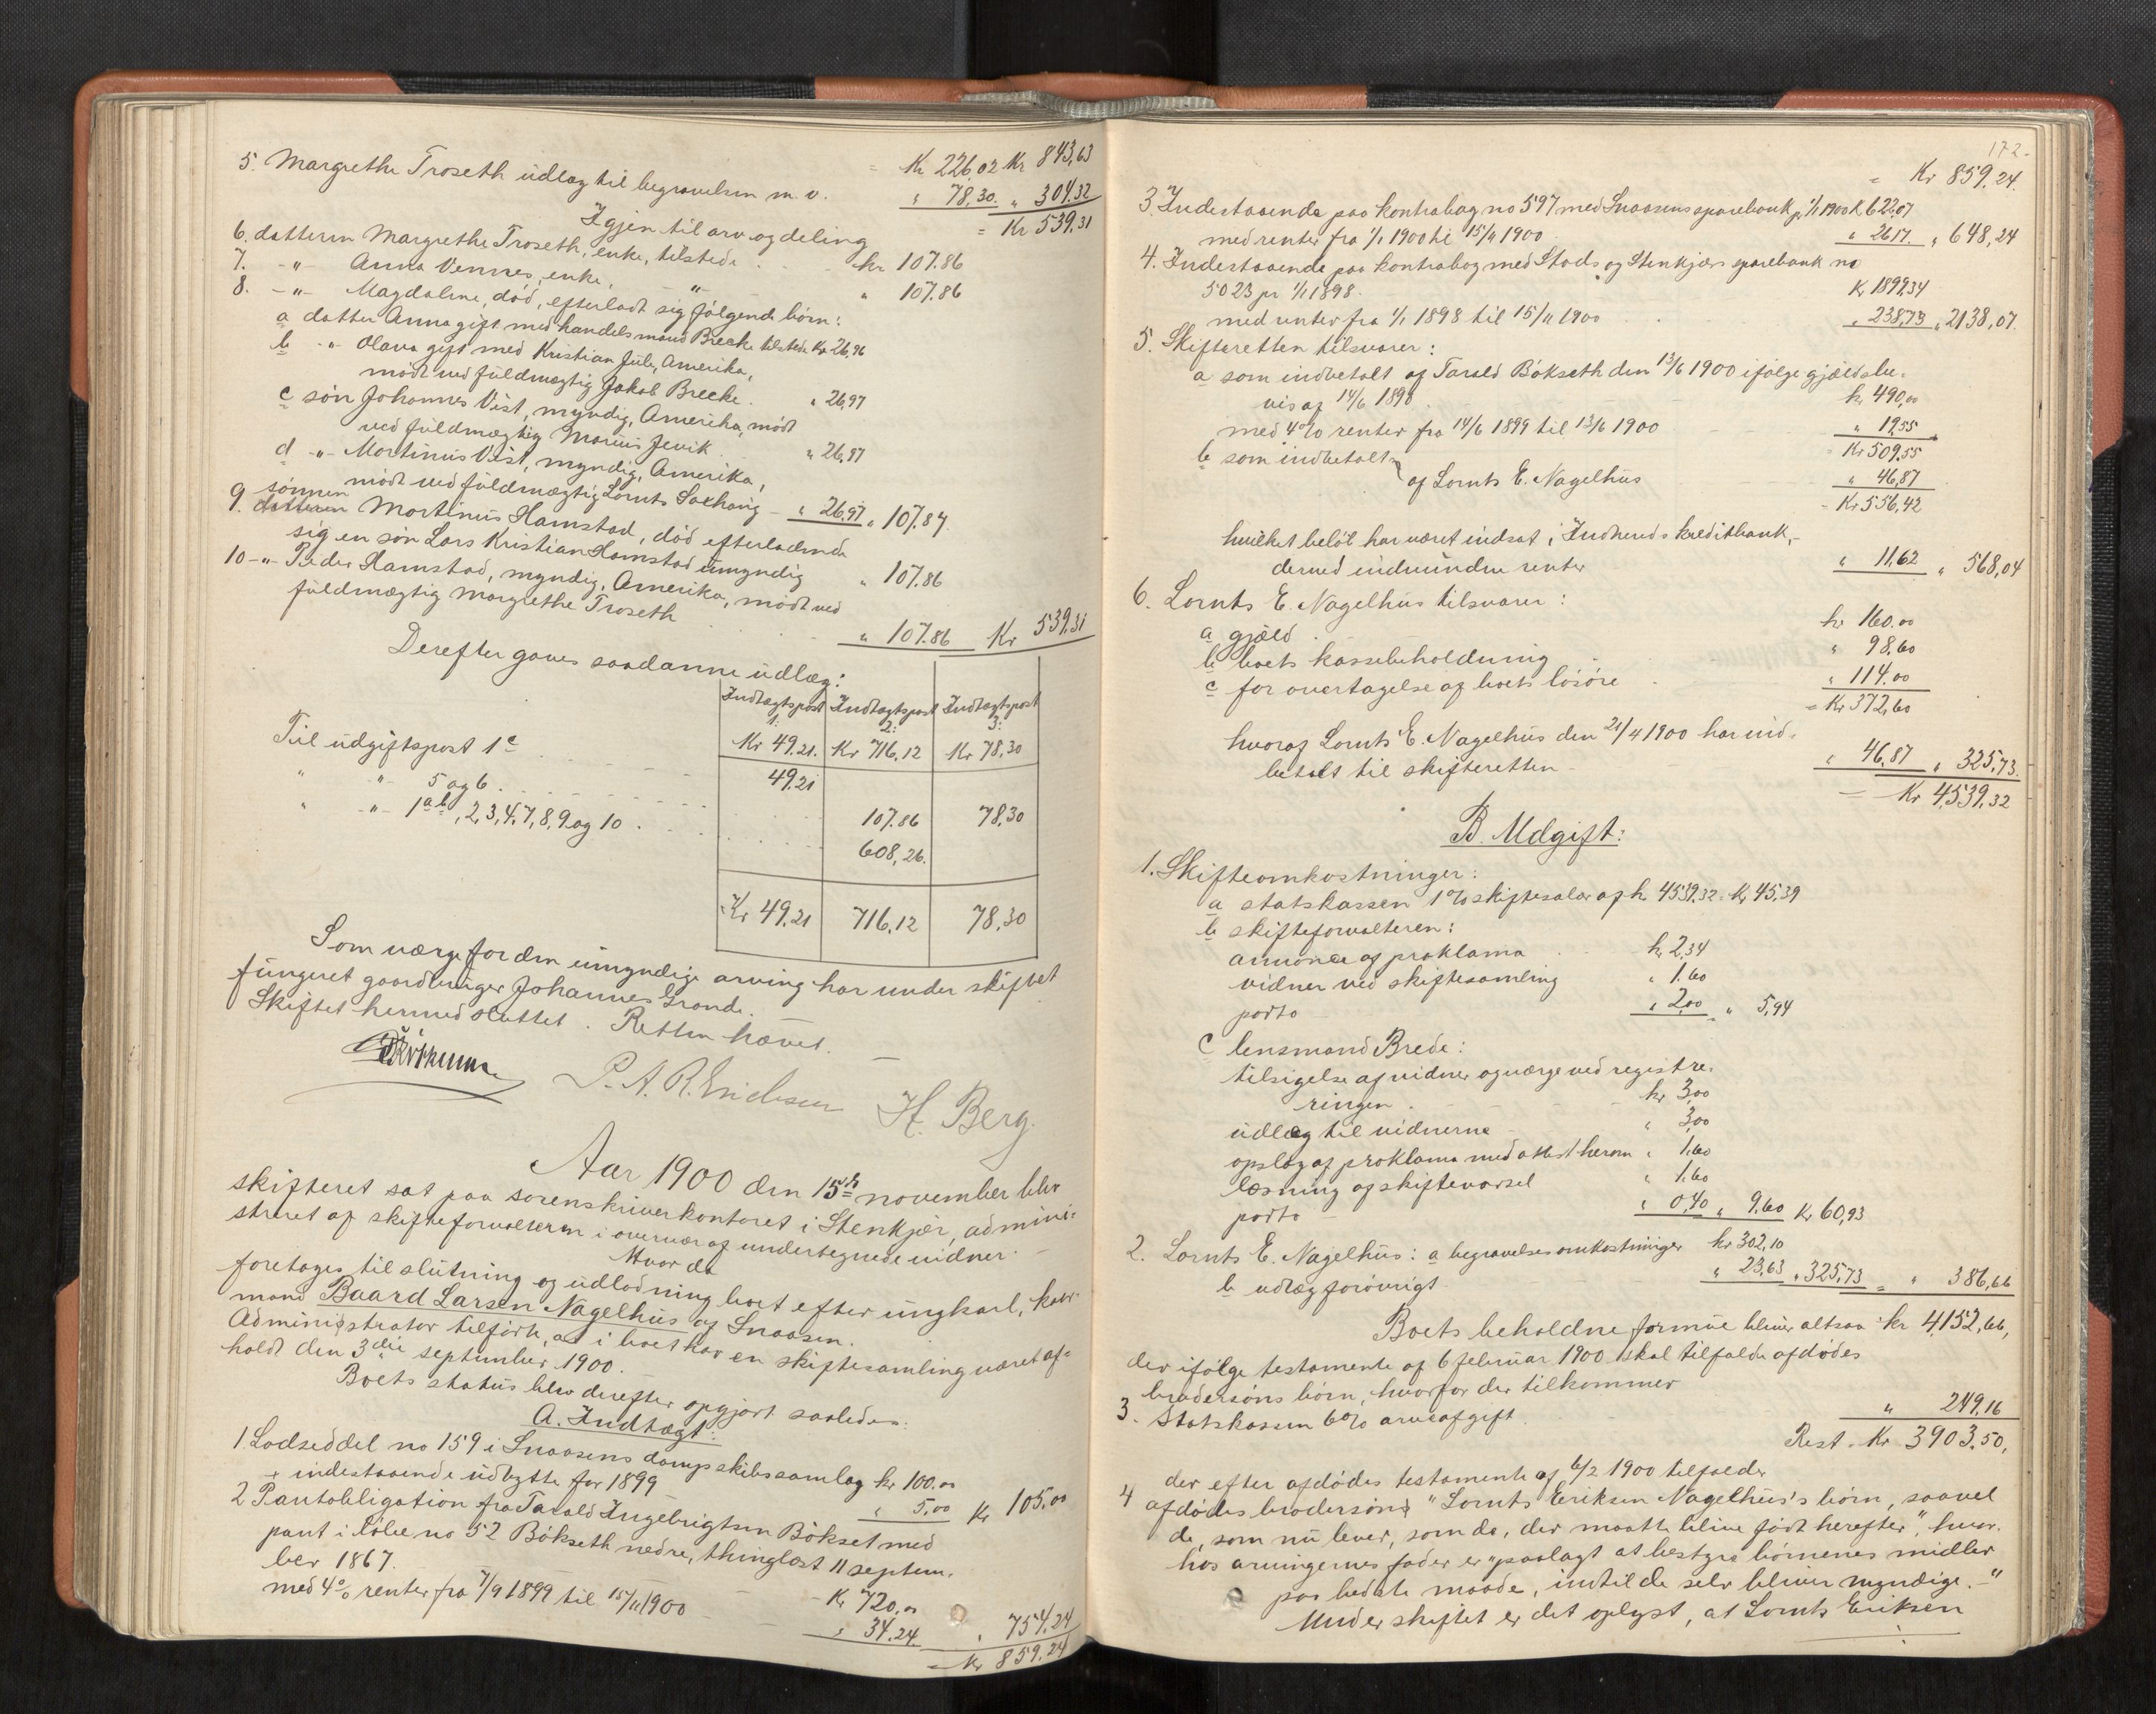 = Kr 226,02 Kr 843,63
5. Margrethe Troseth udlæg til begravelsen m. v. " 78,30. " 304.32
Igjen til arv og deling = Kr 539,31
6. datteren Margrethe Troseth, enke, tilstede kr 107.86
7. -"- Anna Vennes, enke, -"- " 107.86
8. -"- Magdalene, død, efterladt sig følgende børn:
a datter Anna gift med handelsmand Brecke tilstede Kr 26,96
b -"- Olava gift med Kristian Jule, Amerika,
mødt ved fuldmægtig Jakob Brecke. " 26,97
c søn Johannes Vist, myndig, Amerika, mødt
ved fuldmægtig Marius Jevik " 26,97
d -"- Mortinus Vist, myndig, Amerika,
mødt ved fuldmægtig Lornts Sæhaug - " 26,97 " 107.87.
9. sønnen datteren Mortinus Hamstad, død efterladende
sig en søn Lars Kristian Hamstad umyndig " 107.86
10 -"- Peder Hamstad, myndig, Amerika, mødt ved
fuldmægtig Margrethe Troseth " 107.86 Kr 539.31
Derefter gaves saadanne udlæg:
Indtægtspost 1: Indtægtspost 2: Indtægtspost 3:
Kr 49.21. Kr 716,12 Kr 78,30
Til udgiftspost 1c 49.21
" -"- 5 og 6 107.86 78,30
" -"- 1ab, 2, 3, 4, 7, 8, 9 og 10 608,26.
Kr 49.21 716,12 78,30
Som værge for den umyndige arving har under skiftet
fungeret gaardbruger Johannes Grande.
Skiftet hermed sluttet. Retten hævet. —
P. A. R. Erichsen H. Berg.
Aar 1900 den 15de november blev
skifteret sat paa sorenskriverkontoret i Stenkjær, admini-
streret af skifteforvalteren i overvær af undertegnede vidner. —
Hvor da
foretoges til slutning og udlodning boet efter ungkarl, kaar-
mand Baard Larsen Nagelhus af Snaasen.
Administrator tilførte, at i boet har en skiftesamling været af-
holdt den 3die september 1900.
Boets status blev derefter opgjort saaledes:
A. Indtægt:
1. Lodseddel no 159 i Snaasens dampskibssamlag kr 100.00
+ indestaaende udbytte for 1899 " 5,00 Kr 105,00
2 Pantobligation fra Tarald Ingebrigtsen Bøkset med
pant i løbe no 52 Bøkseth nedre, thinglæst 11 septem-
ber 1867. - Kr 720,00
med 4% renter fra 7/9 1899 til 15/11 1900 — " 34.24. " 754,24
= Kr 859.24
172.
= Kr 859,24.
3. Indestaaende paa kontrabog no 597 med Snaasens sparebank pr 1/1 1900 K 622,07
med renter fra 1/1 1900 til 15/11 1900 " 26.17. " 648,24
4. Indestaaende paa kontrabog med Stods og Stenkjærs sparebank no
5023 pr 1/1 1898. Kr 1899,34
med renter fra 1/1 1898 til 15/11 1900 " 238,73 " 2138,07.
5. Skifteretten tilsvarer:
a som indbetalt af Tarald Bøkseth den 13/6 1900 ifølge gjældsbe-
vis af 14/6 1898 kr 490,00
med 4% renter fra 14/6 1899 til 13/6 1900 " 19,55
= Kr 509,55
b som indbetalt af Lornts E. Nagelhus " 46,87
= Kr 556,42
hvilket beløb har været indsat i Indherreds kreditbank, -
derved indvundne renter " 11,62 " 568,04
6. Lornts E. Nagelhus tilsvarer:
a gjæld kr 160.00
b boets kassebeholdning " 98,60
c for overtagelse af boets løsøre " 114.00
= Kr 372,60
hvoraf Lornts E. Nagelhus den 21/4 1900 har ind-
betalt til skifteretten " 46,87 " 325,73.
= Kr 4539,32
B. Udgift:
1. Skifteomkostninger:
a statskassen 1% skiftesalær af kr 4539,32 = Kr 45,39
b skifteforvalteren:
annonce af proklama kr 2,34
vidner ved skiftesamling " 1.60
porto " 2,00 " 5,94
c lensmand Brede:
tilsigelse af vidner og værge ved registre-
ringen kr 3,00
udlæg til vidnerne " 3,00
opslag af proklama med attest herom " 1.60
læsning af skiftevarsel " 1.60
porto " 0,40 " 9,60 Kr 60,93
2. Lornts E. Nagelhus: a begravelsesomkostninger kr 302,10
b udlæg forøvrigt " 23,63 " 325,73 = " 386,66
Boets beholdne formue bliver altsaa kr 4,152,66,
der ifølge testamente af 6 februar 1900 skal tilfalde afdødes
brodersøns børn, hvorfor der tilkommer
3. Statskassen 6% arveafgift " 249,16
Rest. Kr 3903,50,
der efter afdødes testamente af 6/2 1900 tilfalder
4 afdødes brodersøns "Lornts Eriksen Nagelhus's børn, saavel
de, som nu lever, som de, der maatte blive født herefter", hvor-
hos arvingernes fader er "paalagt at bestyre børnenes midler
paa bedste maade, indtil de selv bliver myndige. —"
Under skiftet er det oplyst, at Lornts Eriksen